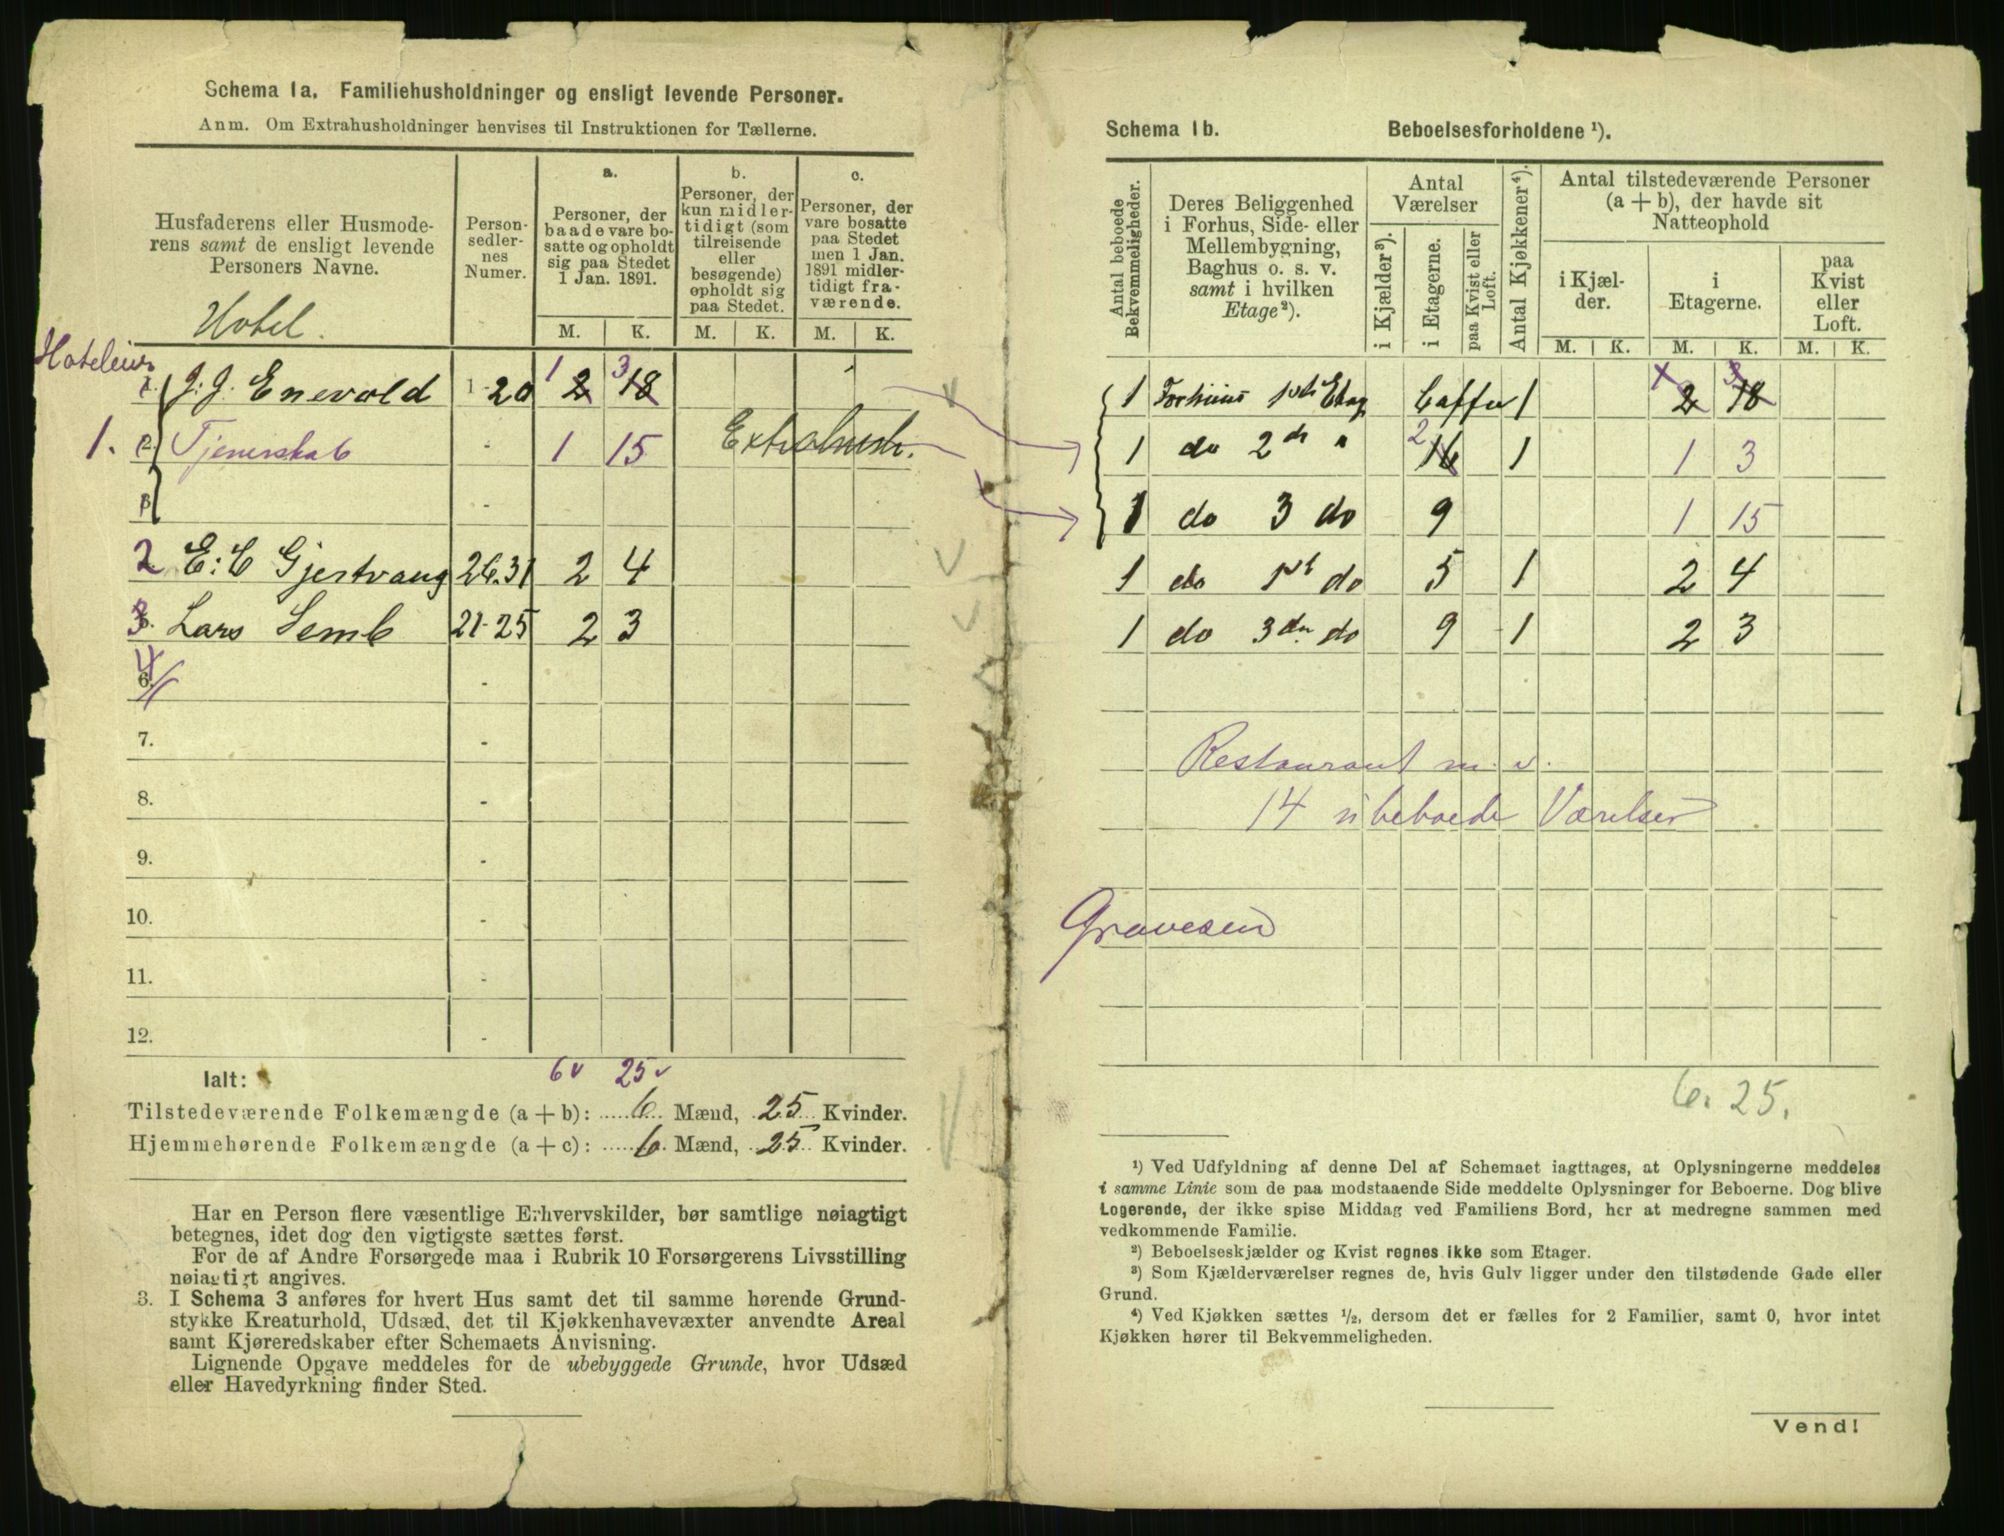 Schema 1a. Familiehusholdninger og ensligt levende Personer.
Anm. Om Extrahusholdninger henvises til Instruktionen for Tællerne.
Husfaderens eller Husmode-
rens samt de ensligt levende
Personers Navne.
Person-
sedler-
nes
Numer.
a.
Personer, der
baade vare bo-
satte og opholdt
sig paa Stedet
1 Jan. 1891.
b.
Personer, der
kun midler-
tidigt (som
tilreisende
eller
besøgende)
opholdt sig
paa Stedet.
c.
Personer, der
vare bosatte
paa Stedet
men 1 Jan.
1891 midler-
tidigt fra-
værende.
M. K. M. K. M. K.
Hotel.
Hoteleier
1. J. J. Enevold 1-20 1 2 3 18
1. 2. Tjenerskab - 1 15 Extrahush.
3 -
2 E: C Gjestvang 26.31 2 4
3. Lars Semb 21-25 2 3
4
6. -
7. -
8. -
9. -
10. -
11. -
12. -
6 v 25 v
Ialt:
Tilstedeværende Folkemængde (a + b): 6 Mænd, 25 Kvinder.
Hjemmehørende Folkemængde (a + c): 6 Mænd, 25 Kvinder.
Har en Person flere væsentlige Erhvervskilder, bør samtlige nøiagtigt
betegnes, idet dog den vigtigste sættes først.
For de af Andre Forsørgede maa i Rubrik 10 Forsørgerens Livsstilling
nøiagtigt angives.
3. I Schema 3 anføres for hvert Hus samt det til samme hørende Grund-
stykke Kreaturhold, Udsæd, det til Kjøkkenhavevæxter anvendte Areal
samt Kjøreredskaber efter Schemaets Anvisning.
Lignende Opgave meddeles for de ubebyggede Grunde, hvor Udsæd
eller Havedyrkning finder Sted.
Schema 1b. Beboelsesforholdene ¹).
Antal beboede
Bekvemmeligheder.
Deres Beliggenhed
i Forhus, Side- eller
Mellembygning,
Baghus o. s. v.
samt i hvilken
Etage ²).
Antal
Værelser
i Kjælder ³).
i Etagerne.
paa Kvist eller
Loft.
Antal Kjøkkener ⁴).
Antal tilstedeværende Personer
(a + b), der havde sit
Natteophold
i Kjæl-
der.
i
Etagerne.
paa
Kvist
eller
Loft.
M. K. M. K. M. K.
1 Forhuus 1ste Etag Caffe 1 1 2 3 18
1 do 2de " 2 16 1 1 3
1 do 3 do 9 1 15
1 do 1st do 5 1 2 4
1 do 3die do 9 1 2 3
Restaurant m. v.
14 ubeboede Værelser
Gravesen
6. 25.
¹) Ved Udfyldning af denne Del af Schemaet iagttages, at Oplysningerne meddeles
i samme Linie som de paa modstaaende Side meddelte Oplysninger for Beboerne. Dog blive
Logerende, der ikke spise Middag ved Familiens Bord, her at medregne sammen med
vedkommende Familie.
²) Beboelseskjælder og Kvist regnes ikke som Etager.
³) Som Kjælderværelser regnes de, hvis Gulv ligger under den tilstødende Gade eller
Grund.
⁴) Ved Kjøkken sættes ½, dersom det er fælles for 2 Familier, samt 0, hvor intet
Kjøkken hører til Bekvemmeligheden.
Vend!